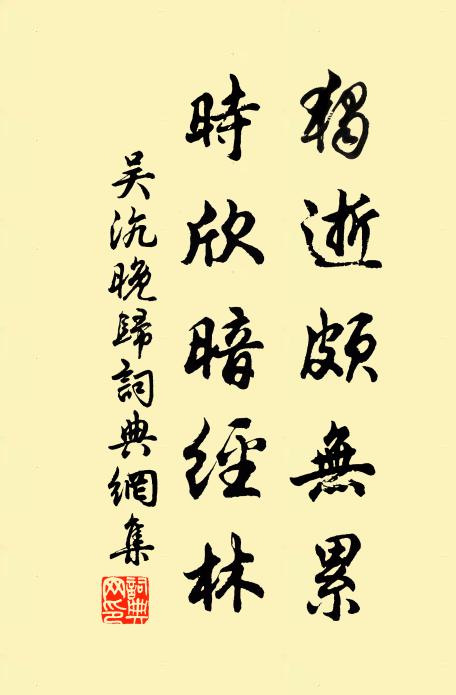 獨逝頗無累
時欣暗經林
吳沆晚歸詞典網集
詞典網印